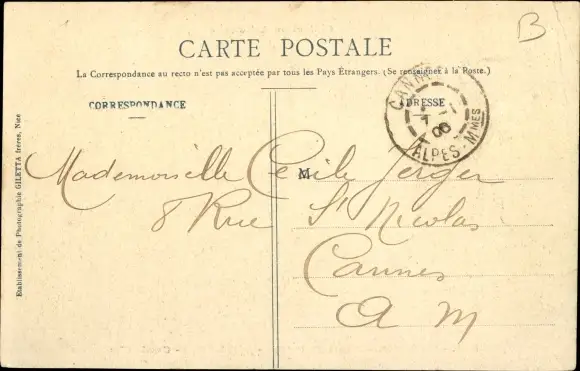 B
CARTE POSTALE
La Correspondance au recto n'est pas acceptée par tous les Pays Étrangers. (Se renseigner à la Poste.)
CORRESPONDANCE
ADRESSE
CANNES
ALPES-MMES
06
Mademoiselle Cécile Jerger
M
8 Rue St Nicolas
Cannes
A M
Etablissement de Photographie GILETTA frères, Nice